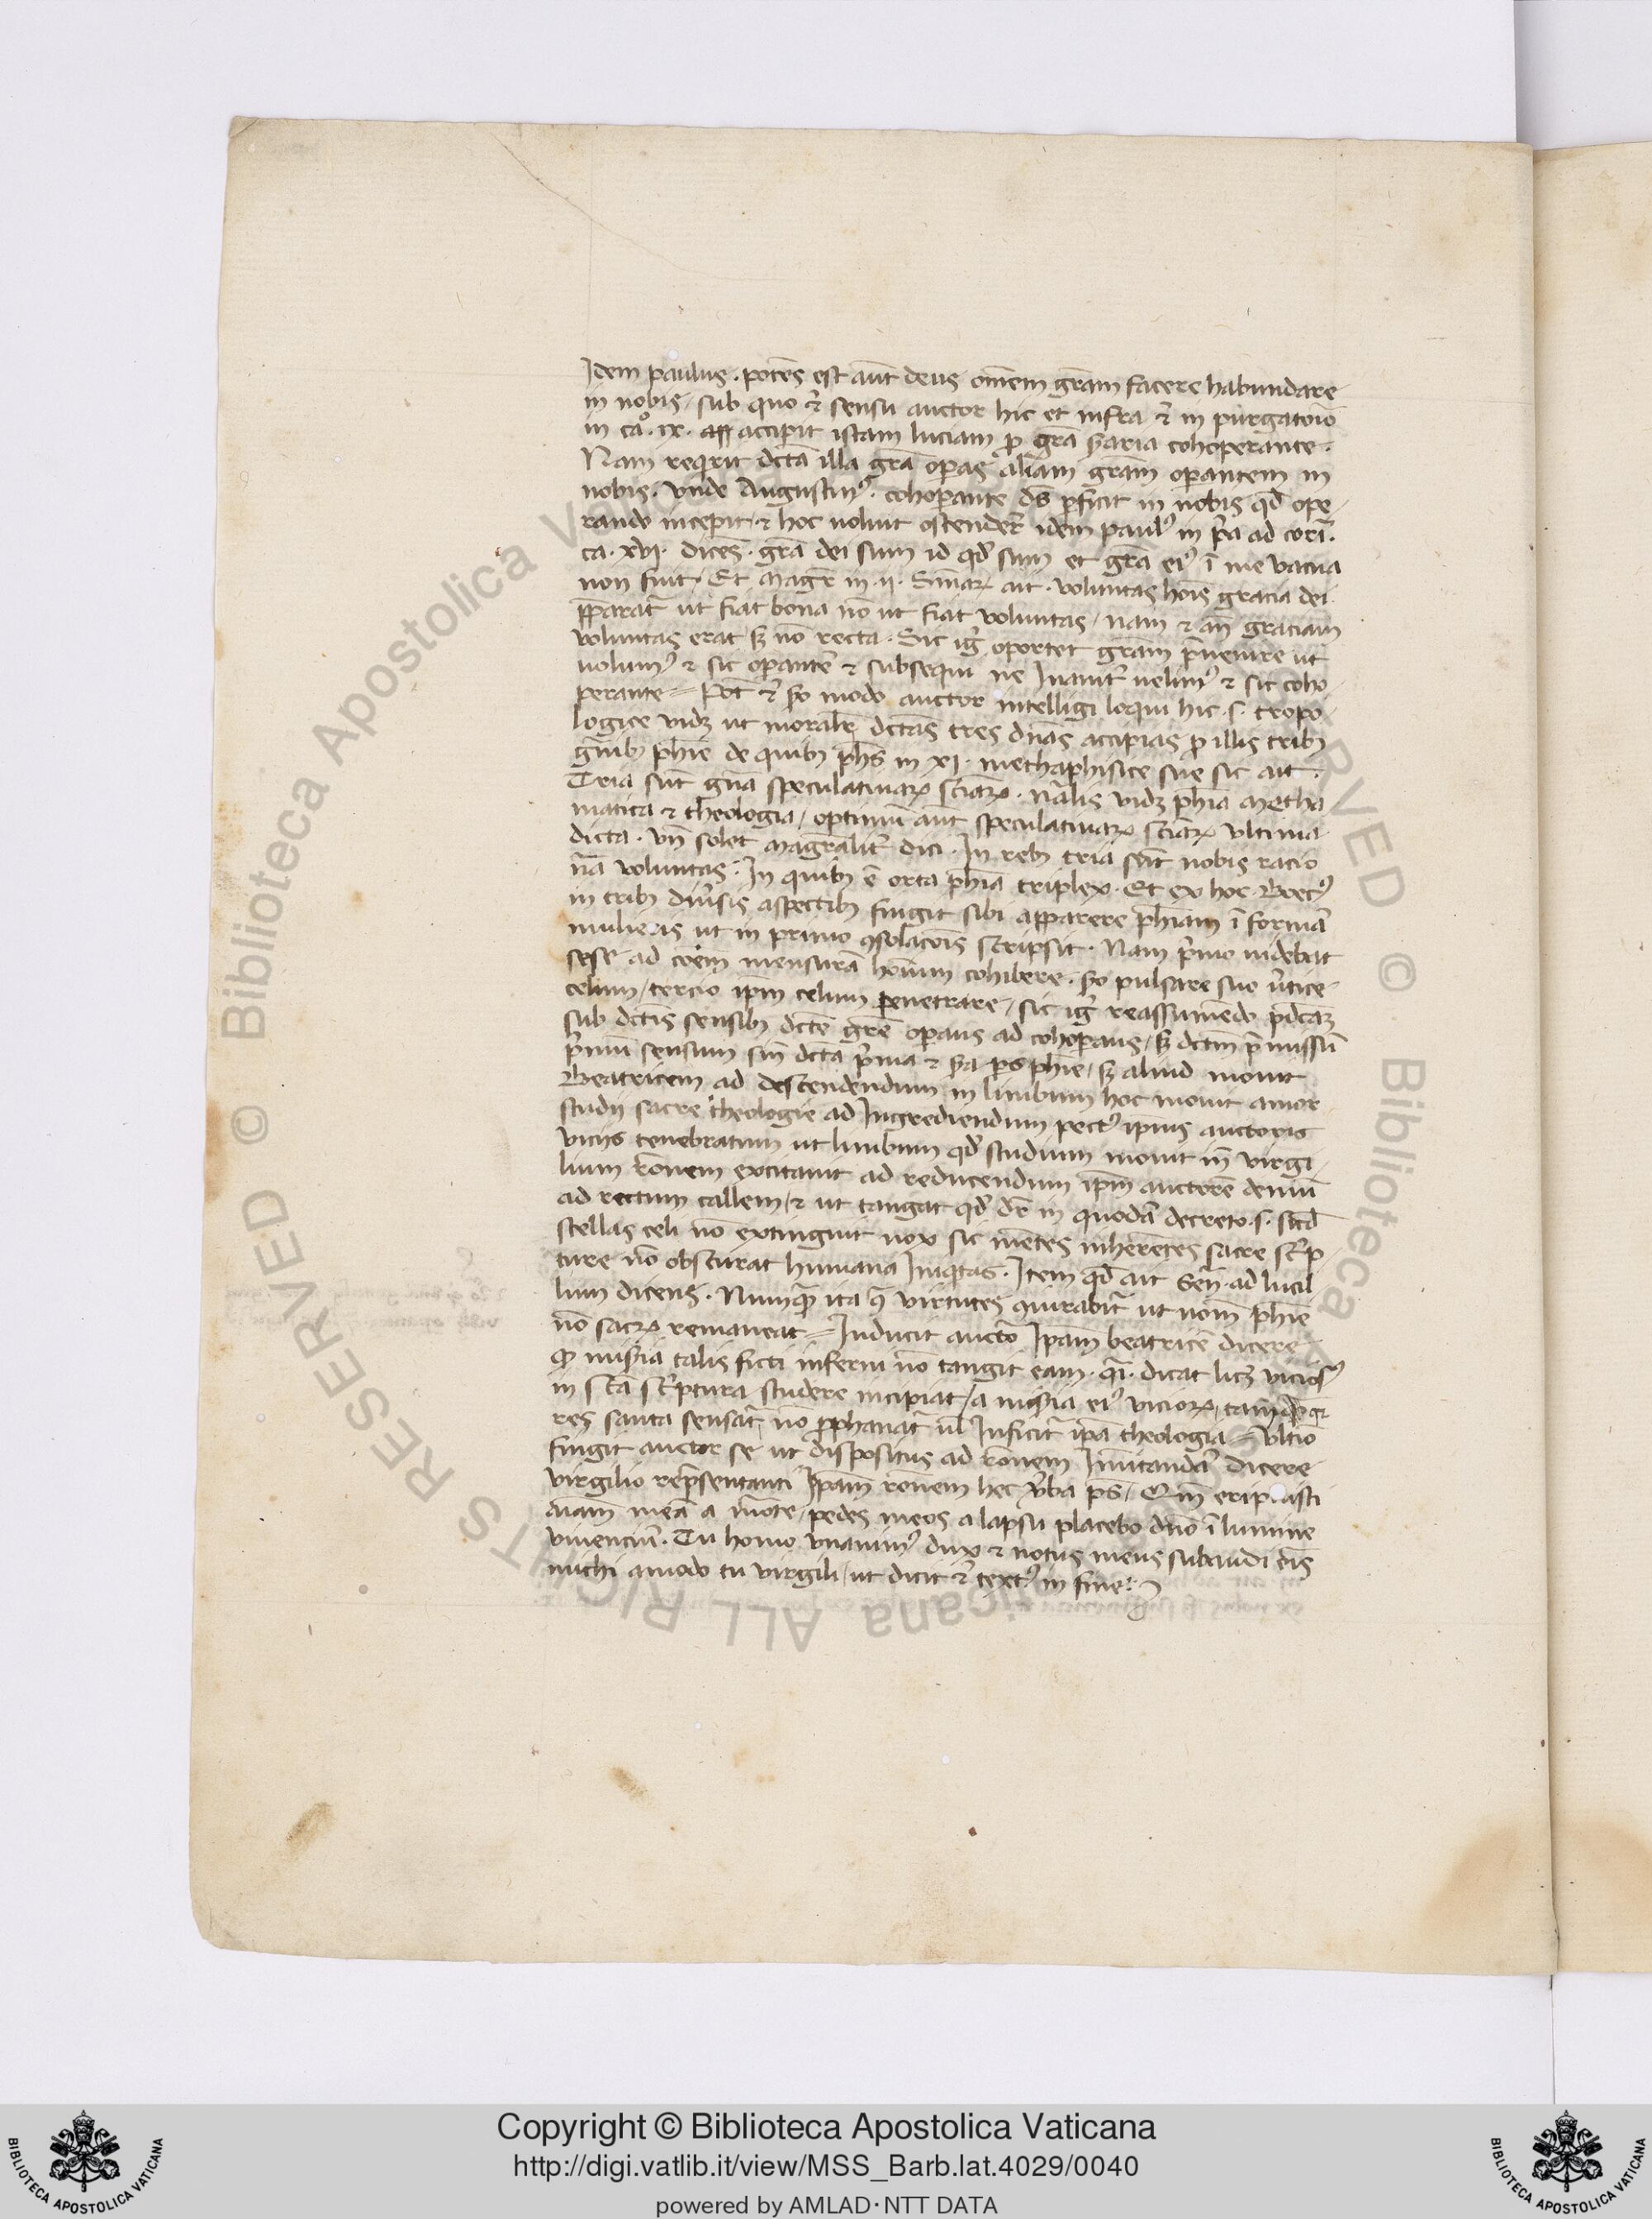 Idem paulus . potēs est aūt deus omēm grām facere habundare
in nobis / sub quo ⁊ sensu auctor hic et infra ⁊ in purgatoīo
in cao . ix . accipit istam luciam ꝑ grā cohoperante .
Nam reqirit dctā illa grā opās aliam grām operantem in
nobis . vnde Augustinꝰ . cohoperante ds ꝑficit in nobis qd ope
rando incepit . ⁊ hoc uoluit ostender idem paulꝰ in pa ad cori .
ca . xvi . dicēs . grā dei sum id qd sum et grā eiꝰ ī me vacua
non fuit . Et magr in .ii. ait . voluntas hoīs gracia dei
ꝑparat ut fiat bona nō ut fiat voluntas / nam ⁊ an graciam
voluntas erat sꝫ nō recta . Sic ig oportet grām pruenire ut
uolumꝰ ⁊ sic operantē ⁊ subsequi ne Inanit uelimꝰ ⁊ sic coho
perante = Pot ⁊ modo auctor intelligi loqui hic .s. tropo
logice vidꝫ ut moralr dctās tres dnās accipias ꝑ illis tribꝫ
gnibꝫ phie de quibꝫ phs in xi . methaphisice sue sic ait .
Tria sūt gna speculatiuarꝫ sciarꝫ . nalis vidꝫ phia metha
matica ⁊ theologia / optimū aūt speculatiuarꝫ sciarꝫ vltima
dicta . vn solet magralit dici . In rebꝫ tria sūt nobis racio
nā voluntas . In quibꝫ ē orta phia triplex . Et ex hoc . Boecꝰ
in tribꝫ diuisis aspectibꝫ fingit sibi apparere phiam ī formā
mulieris ut in primo ꝯsolacōis scripsit . Nam pmo uidebat
sese ad coēm mensurā hoīum cohibere . pulsare suo utice
celum / tercio ipm celum penetrare / sic ig reassumēdo
sub dctis sensibꝫ dcte gre operans ad cohoperans / sꝫ dctm pmissū
pmū sensum sm dctā pma ⁊ ps phie / sꝫ aliud mouit
Beatricem ad descendendum in limbum hoc mouit amor
studij sacre theologie ad Ingrediendum pectꝰ ipius auctoris
vicijs tenebratum ut limbum qd studium mouit in virgi
lium rōnem excitauit ad reducendum ipm auctorē deuiū
ad rectum callem / ⁊ ut tangat qd dr in quodā decreto .s. sicd
stellas celi nō extinguit nox sic mētes inherētes sacre scrip
ture nō obscurat humana Iniqtas . Item qd ait Sen . ad lucil
lium dicens . Numqꝫ ita virtutes ut nom phie
nō sacrꝫ remaneat = Inducit aucto Ipam beatricē dicere
qꝫ misia talis ficti inferni nō tangit eam . qi . dicat licꝫ viciosꝰ
in scā scriptura studere incipiat / a misia eiꝰ viciorꝫ / tam
res sancta nō ꝓphanat ul Inficit ipa theologia = vltio
fingit auctor se ut dispositus ad rōnem Imitandā dicere
virgilio representanti Ipam rōnem hec vba ps / Qm eripuisti
aiam meā a morte / pedes meos a lapsu placebo dno ī lumine
viuenciū . Tu homo vnanimꝰ dux ⁊ notus meus subaudi
michi amodo tu virgili / ut dicit ⁊ textꝰ in fine :
Copyright © Biblioteca Apostolica Vaticana
http://digi.vatlib.it/view/MSS_Barb.lat.4029/0040
powered by AMLAD·NTT DATA
BIBLIOTECA APOSTOLICA VATICANA
BIBLIOTECA APOSTOLICA VATICANA
© Biblioteca Apostolica Vaticana ALL RIGHTS RESERVED